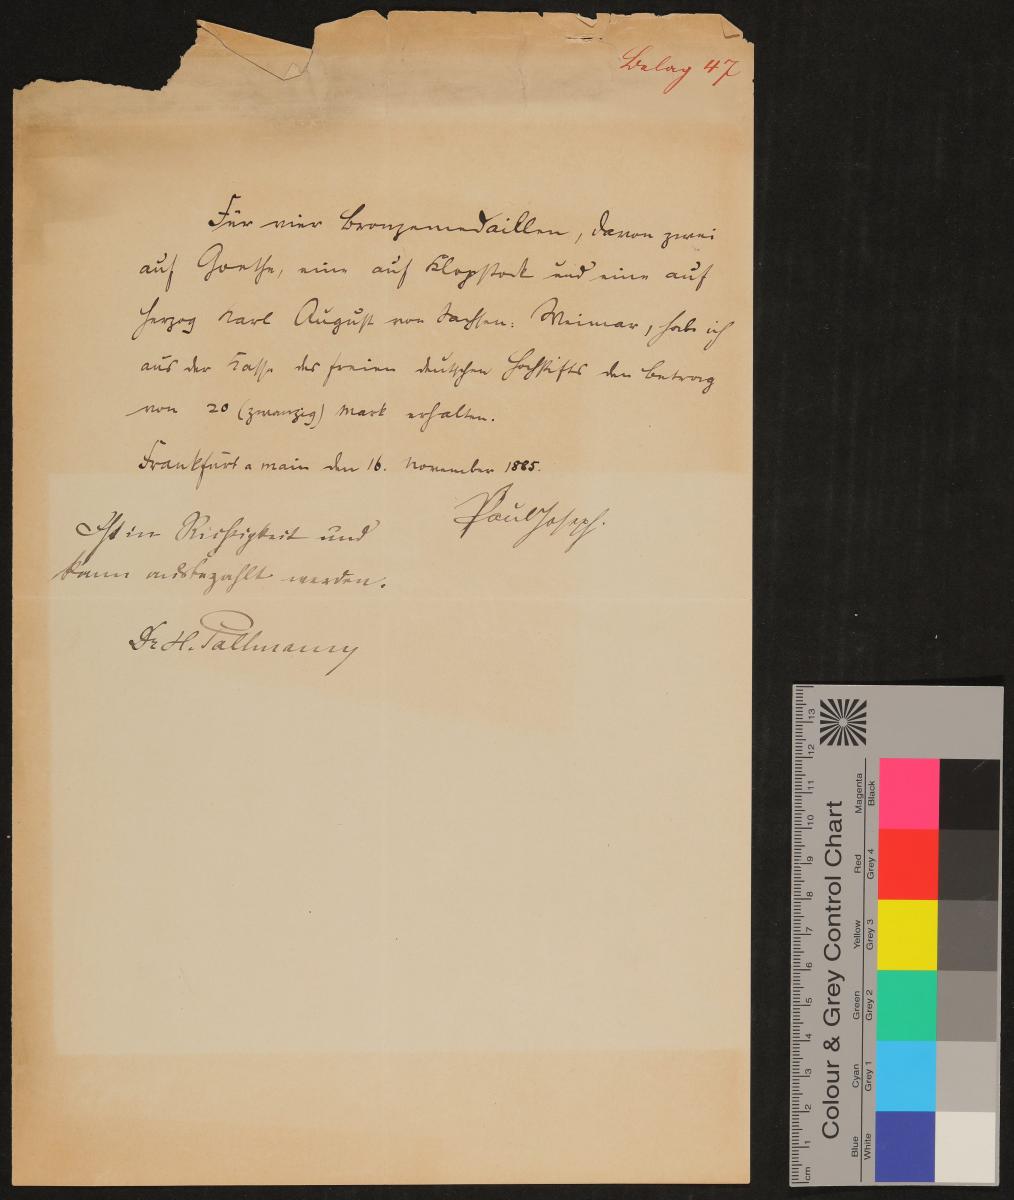 Belag 47
Für vier Bronzemedaillen, davon zwei
auf Goethe, eine auf Klopstock und eine auf
Herzog Karl August von Sachsen-Weimar, habe ich
aus der Kasse des freien deutschen Hochstifts den Betrag
von 20 (zwanzig) Mark erhalten.
Frankfurt a Main den 16. November 1885.
Paul Joseph.
Ist in Richtigkeit und
kann ausbezahlt werden.
Dr H. Pallmann
Colour & Grey Control Chart
Blue Cyan Green Yellow Red Magenta
White Grey 1 Grey 2 Grey 3 Grey 4 Black
cm 1 2 3 4 5 6 7 8 9 10 11 12 13